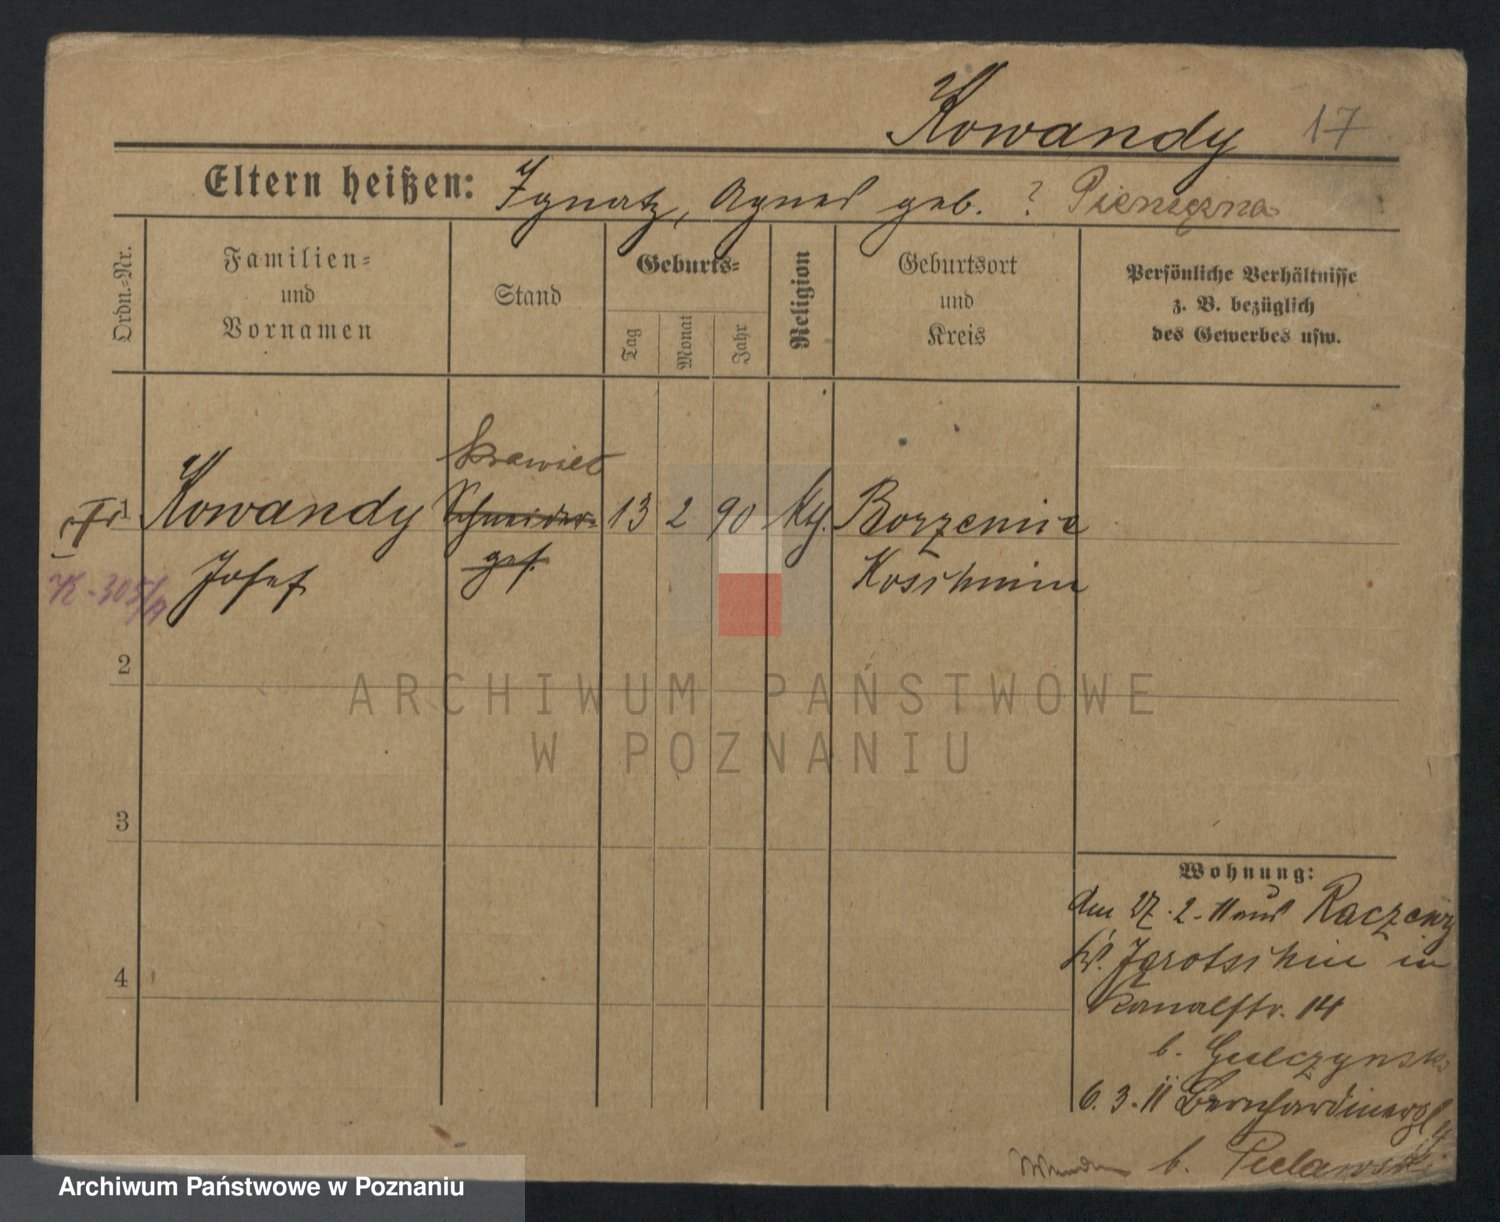 Kowandy 17
Eltern heißen: Ignatz, Agnes geb. ? Pienięzna
Ordn.-Nr.
Familien-
und
Vornamen
Stand
Geburts-
Tag
Monat
Jahr
Religion
Geburtsort
und
Kreis
Persönliche Verhältnisse
z. B. bezüglich
des Gewerbes usw.
krawiec
1 Kowandy Schneider- 13 2 90 Borzemie
Josef ges. Koschmin
2
3
4
ARCHIWUM PAŃSTWOWE
W POZNANIU
Wohnung:
am 27.2.11 aus
Kr. Jarotschin in
Kanalstr. 14
b. Gulczynski
6.3.11
b.
Archiwum Państwowe w Poznaniu